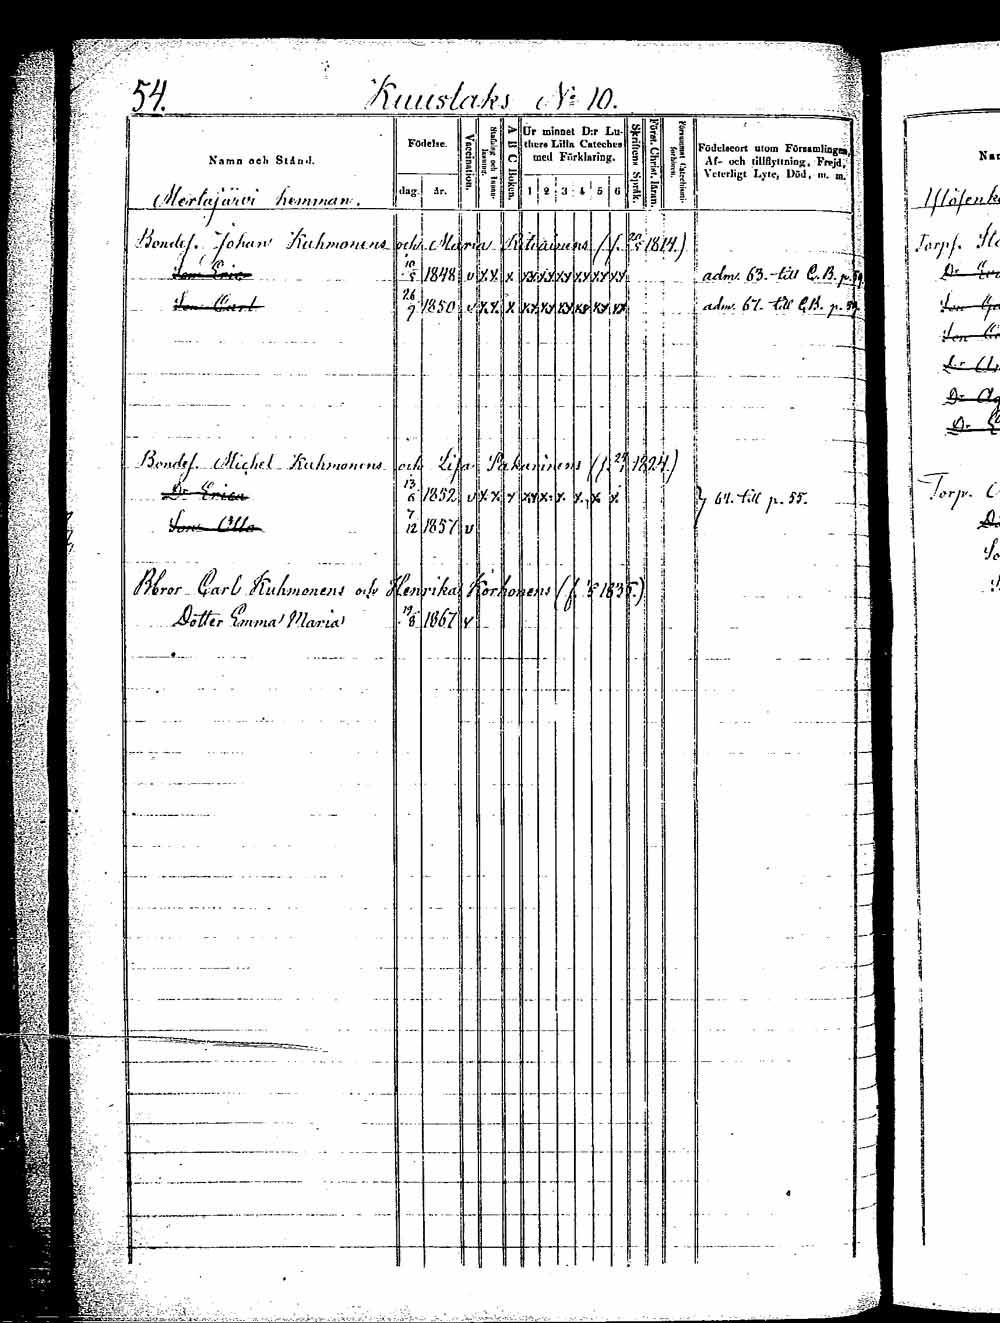 54.
Kuuslaks No 10.
Namn och Stånd.
Födelse.
dag.
år.
Vaccination.
A B C Boken.
Ur minnet D:r Luthers Lilla Cateches med Förklaring.
1 2 3 4 5 6
Skriftens Språk.
Födelseort utom Församlingen, Af- och tillflyttning, Frejd, Veterligt Lyte, Död, m. m.
Mertajärvi hemman.
Bondes. Johan Kuhmonens och Maria Ritvainens (f. 20/5 1814.)
Son Eric 10/5 1848 v x x x xx xx xx xx xx xx adm. 63. till C.B. p. 59.
Son Carl 26/9 1850 v x x x xx xx xx xx xx xx adm. 67. till C.B. p. 59.
Bondes. Michel Kuhmonens och Lisa Pakarinens (f. 1824.)
Dr Erica 13/6 1852 v x x x xx x x x x x } 61. till p. 55.
Son Olla 7/12 1857 v
Bbror Carl Kuhmonens och Henrika Korhonens (f. 1835.)
Dotter Emma Maria 19/8 1867 v
Torp.
Torp.